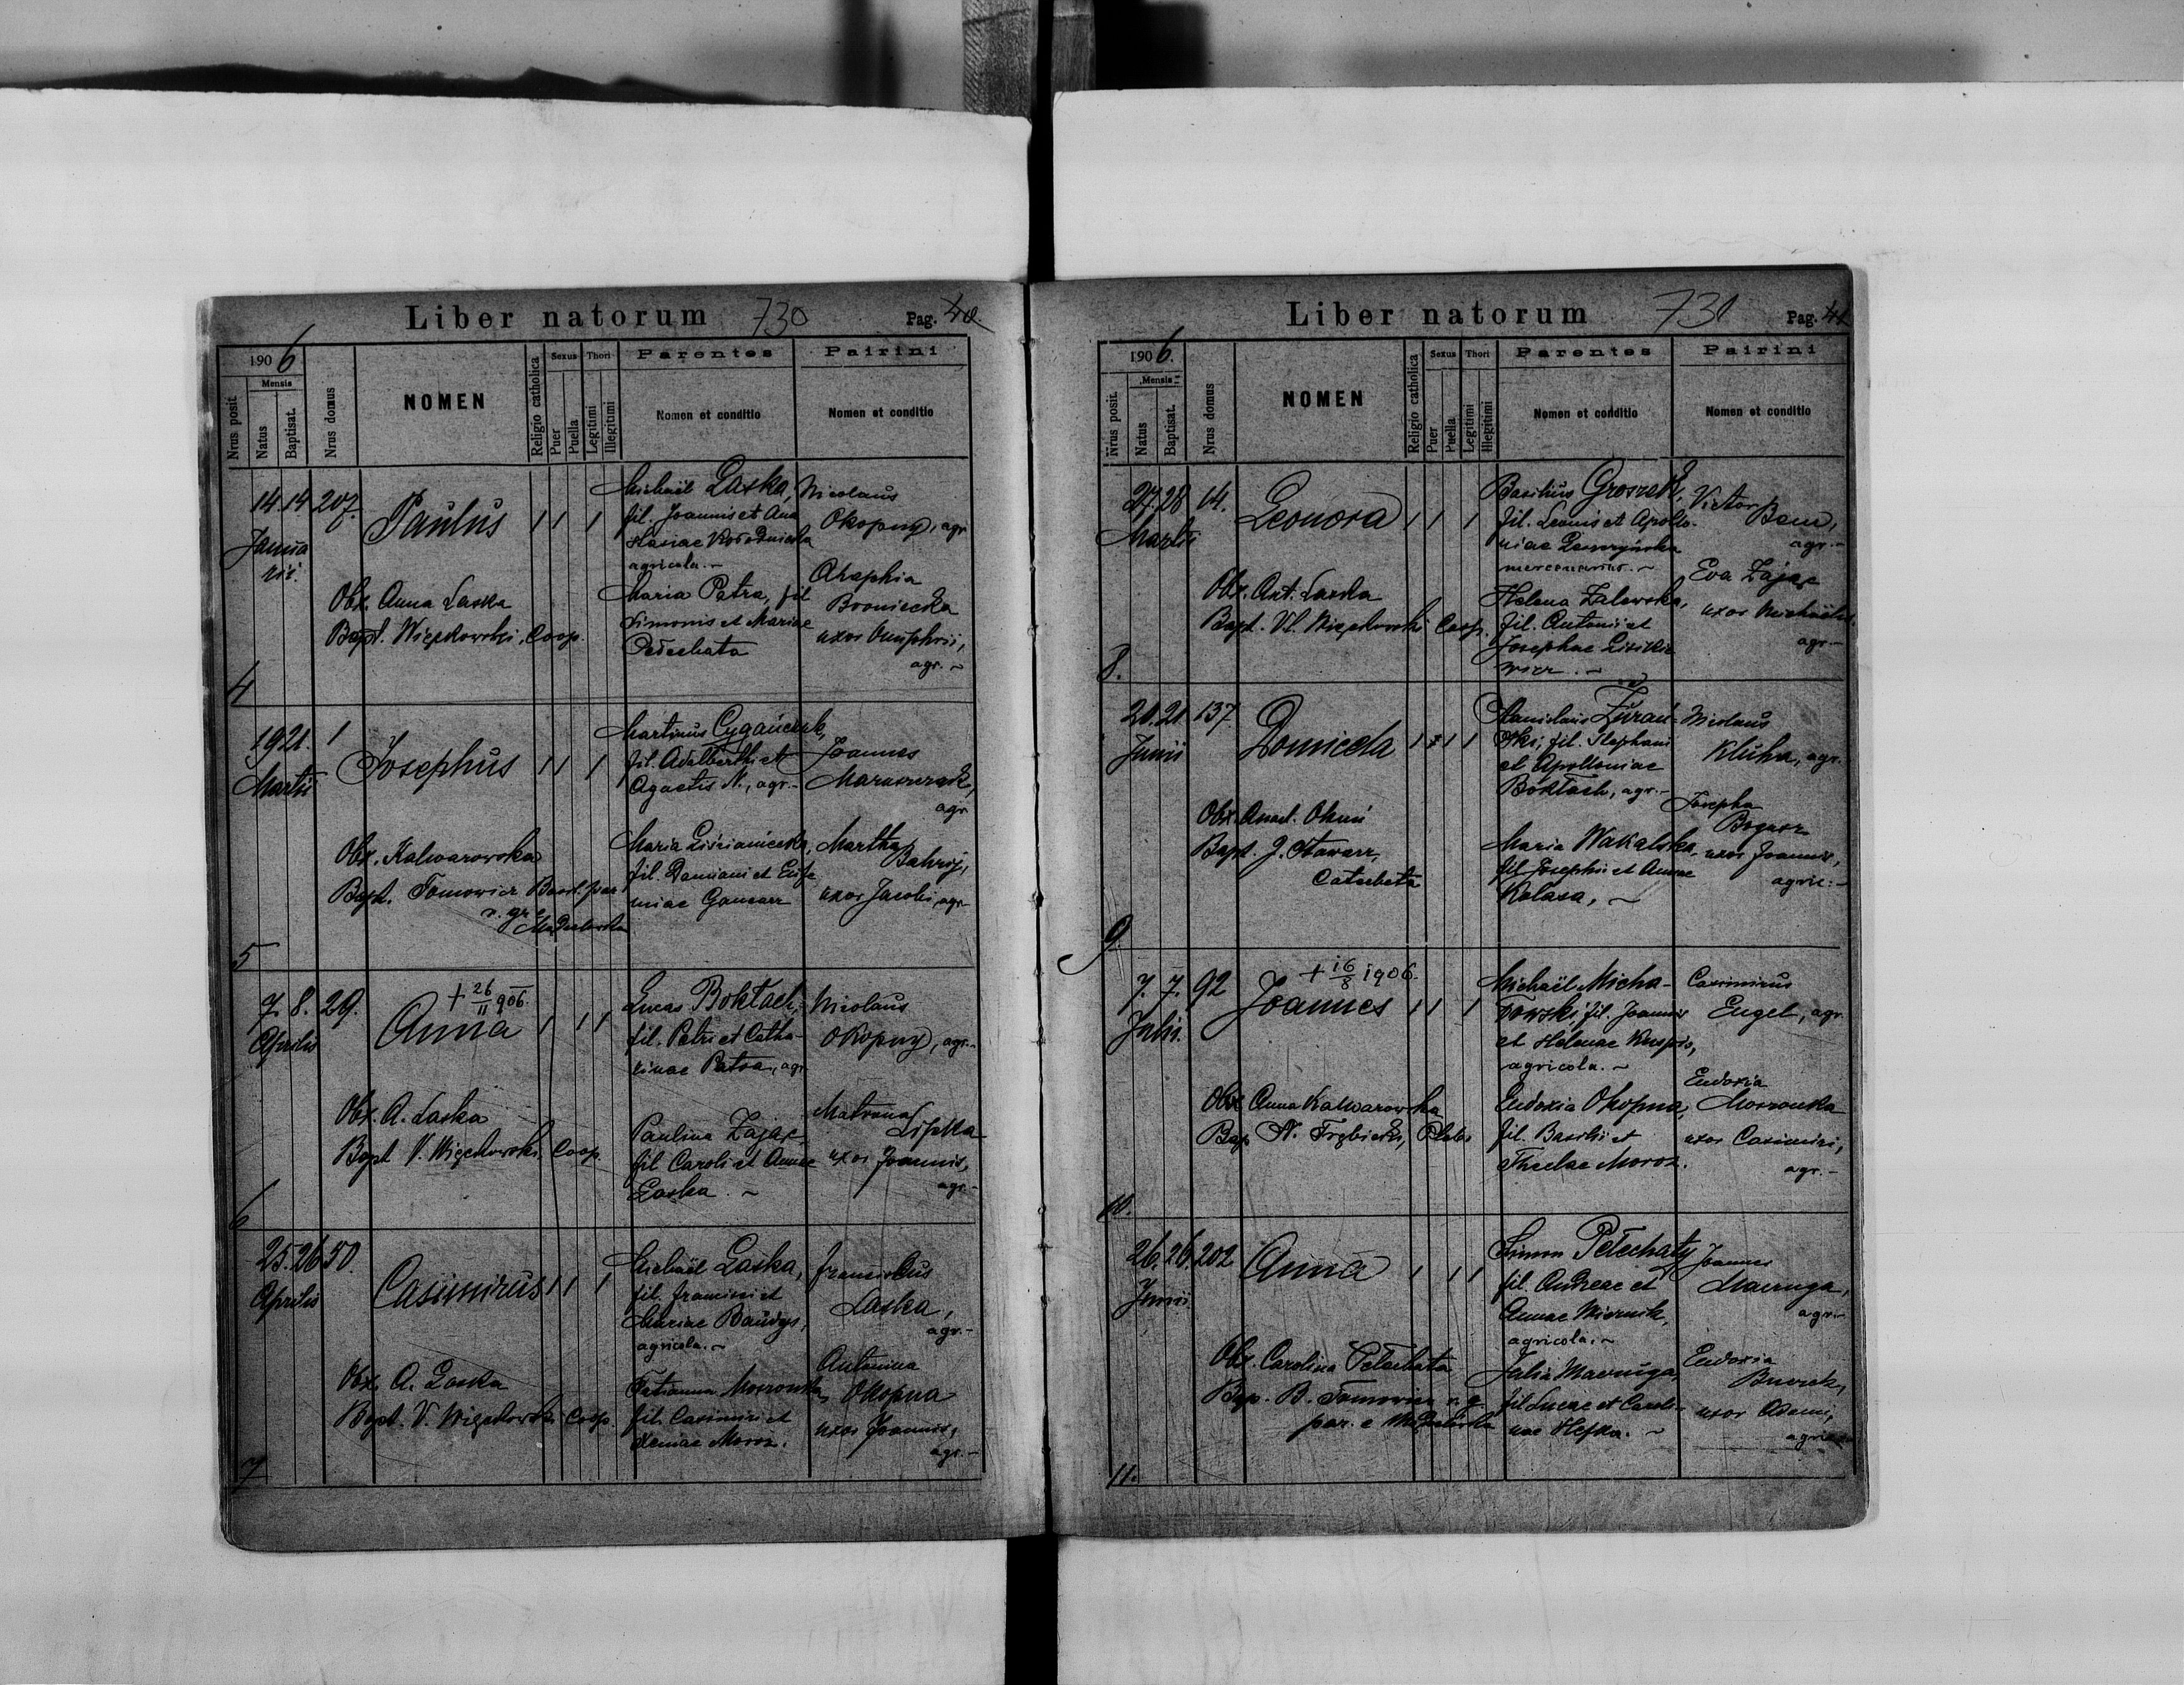 Liber natorum 730 Pag. 40.
1906
Nrus posit.
Mensis
Natus
Baptisat.
Nrus domus
NOMEN
Religio catholica
Sexus
Puer
Puella
Thori
Legitimi
Illegitimi
Parentes
Nomen et conditio
Patrini
Nomen et conditio
4
14 14 207.
Janua
rii.
Paulus
1 1 1
Obx. Anna Laska
Bapt. Więckowski, Coop.
Michaël Laska,
fil. Joannis et Ana
stasiae
agricola. ~
Maria Patra, fil
Simonis et Mariae
Pełechata
Nicolaus
Okopny, agr.
Agaphia
Broniecka
uxor Onuphrii,
agr. ~
5
19 21. 1
Martii
Josephus
1 1 1
Obx. Kalwarowska
Bapt. Tomowicz Basil. par
r. gr. e
Martinus Cygańczuk,
fil. Adalberthi et
Agaetis N., agr. -
Maria
fil. Damiani et Eufe
miae Gancarz
Joannes
agr
Martha
Bahrij,
uxor Jacobi, agr-
6
7. 8. 29.
Aprilis
+ 26/11 906.
Anna
1 1 1
Obx. A. Laska
Bapt V. Więckowski Coop.
Lucas Boktach,
fil. Petri et Catha-
rinae Patra, agr
Paulina Zając,
fil Caroli et Annae
Laska. ~
Nicolaus
Okopny, agr.-
Matrona
Lipka
uxor Joannis,
agr.-
7
25. 26 50.
Aprilis
Casimirus
1 1 1
Obx. A. Laska
Bapt. V. Więckowski Coop.
Michaël Laska,
fil. Francisci et
Mariae Baudys,
agricola. ~
Tatianna Morowska,
fil. Casimiri et
Xeniae Moroz.
Franciscus
Laska,
agr.-
Antonina
Okopna
uxor Joannis,
agr.-
Liber natorum 731 Pag. 41
1906.
Nrus posit.
Mensis
Natus
Baptisat.
Nrus domus
NOMEN
Religio catholica
Sexus
Puer
Puella
Thori
Legitimi
Illegitimi
Parentes
Nomen et conditio
Patrini
Nomen et conditio
8.
27. 28 14.
Martii
Leonora
1 1 1
Obx. Ant. Laska
Bapt. Vl. Więckowski Coop.
Basilius Groszek,
fil. Leonis et Apollo-
niae Leszczyńska
mercenarius. ~
Helena Zalewska,
fil. Antonii et
Josephae Lisikie
wicz. ~
Victor Bem,
agr.-
Eva Zając
uxor Michaëlis
agr.-
9.
20. 21 137.
Junii
Domicela
1 1 1
Obx. Anast. Okuń
Bapt. J. Stawarz,
Catecheta
Stanislaus Żurań-
ski, fil. Stephani
et Apolloniae
Boktach, agr.-
Maria Wakalska,
fil Josephi et Annae
Kolasa, ~
Nicolaus
Kluha, agr.
Josepha
Bogusz
uxor Joannis,
agric.-
10.
7. 7. 92
Julii.
+ 16/8 1906.
Joannes
1 1 1
Obx Anna Kalwarowska
Bap N. Trzbicki, Pleb.
Michaël Micha-
łowski, fil. Joannis
et Helenae
agricola. ~
Eudoxia Okopna,
fil. Basilii et
Theclae Moroz.
Casimirus
Engel, agr.
Eudoxia
Morowska
uxor Casimiri,
agr.-
11.
26. 26. 202
Junii
Anna
1 1 1
Obx. Carolina Pełechata
Bap. B. Tomowicz r. g.
par. e
Simon Pełechaty
fil. Andreae et
Annae Miernik,
agricola. ~
Julia Macruga,
fil Lucae et Caroli-
nae Hefka. ~
Joannes
Macruga,
agr.-
Eudoxia
uxor Adami,
agric.